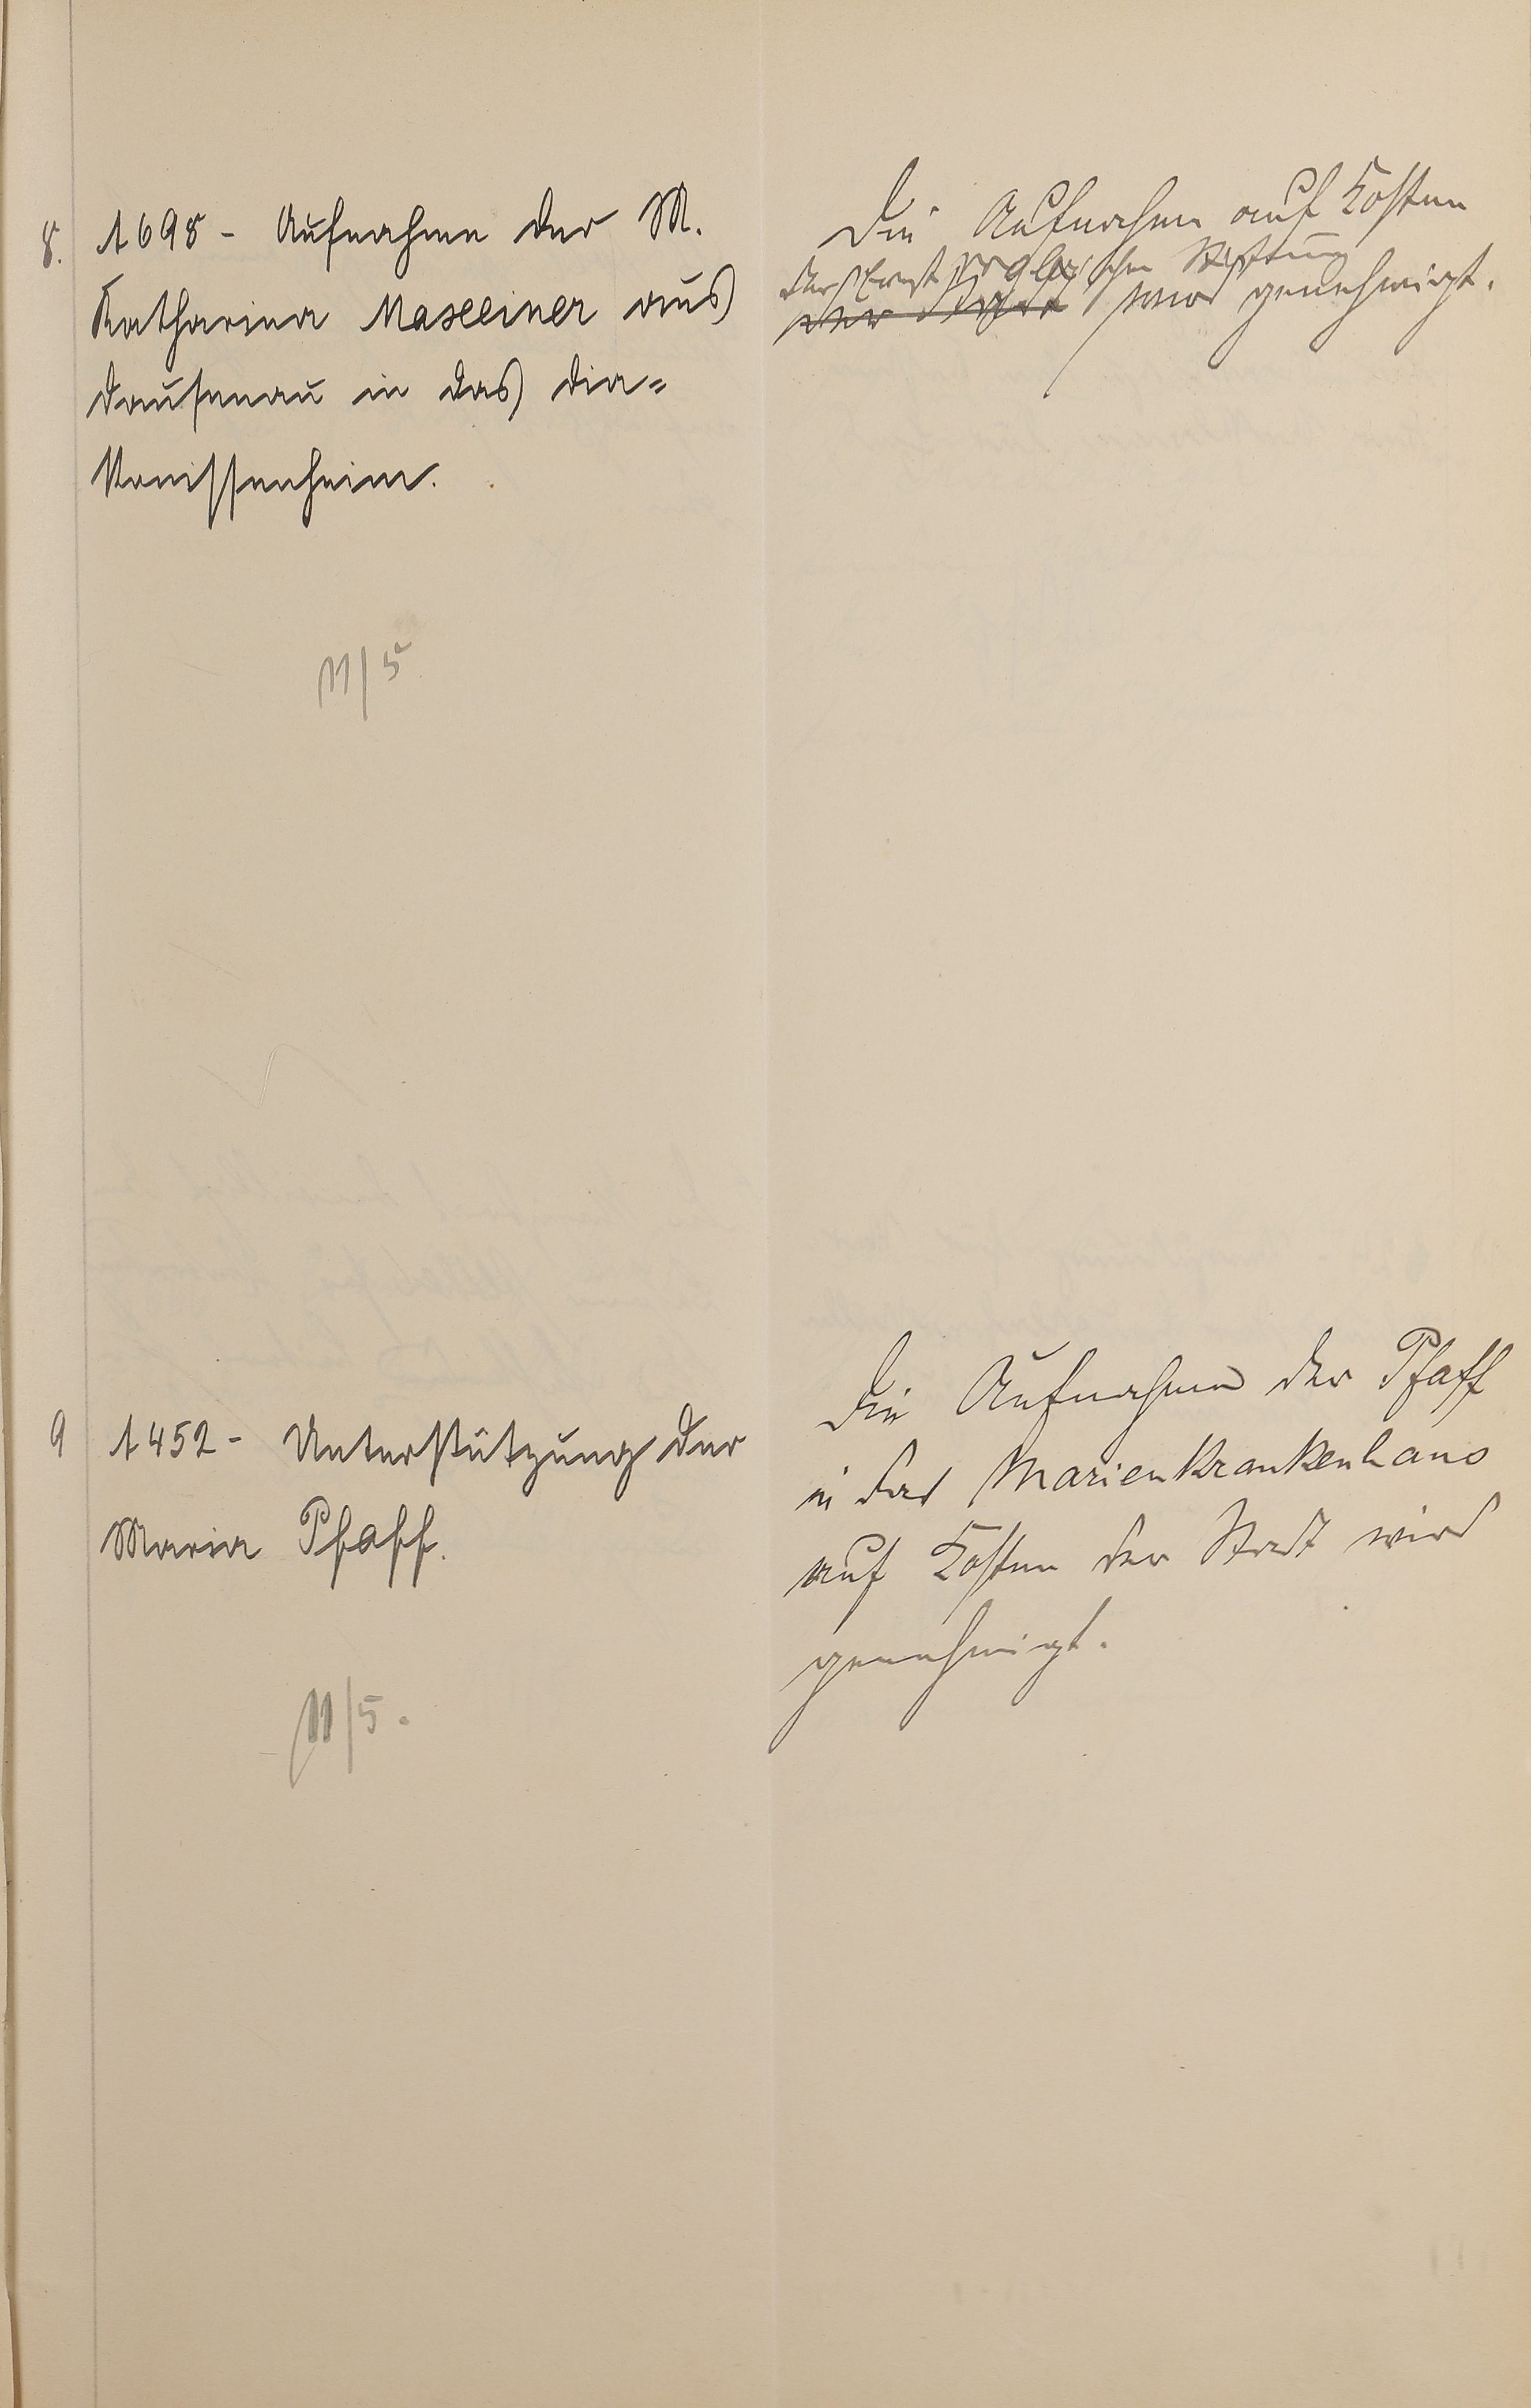 8. 1698 - Aufnahme der M.
Katharina Maxeiner aus
Dausenau in das Dia-
konissenheim.
Die Aufnahme auf Kosten
der Ernst Vogler'schen Stiftung
der Stadt wird genehmigt.
11/5
9 1452 - Unterstützung der
Maria Pfaff.
Die Aufnahme der Pfaff
in das Marienkrankenhaus
auf Kosten der Stadt wird
genehmigt.
11/5.